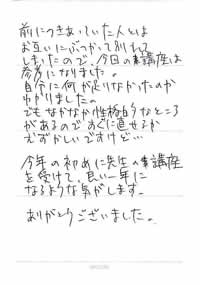 前につきあっていた人とは
お互いにぶつかって別れて
しまったので、今回の講座は
参考になりました。
自分に何が足りなかったのか
わかりました。
でもなかなか性格的なところ
があるのですぐに直せるか
むずかしいですけど…
今年の初めに先生の講座
を受けて、良い一年に
なるような気がします。
ありがとうございました。